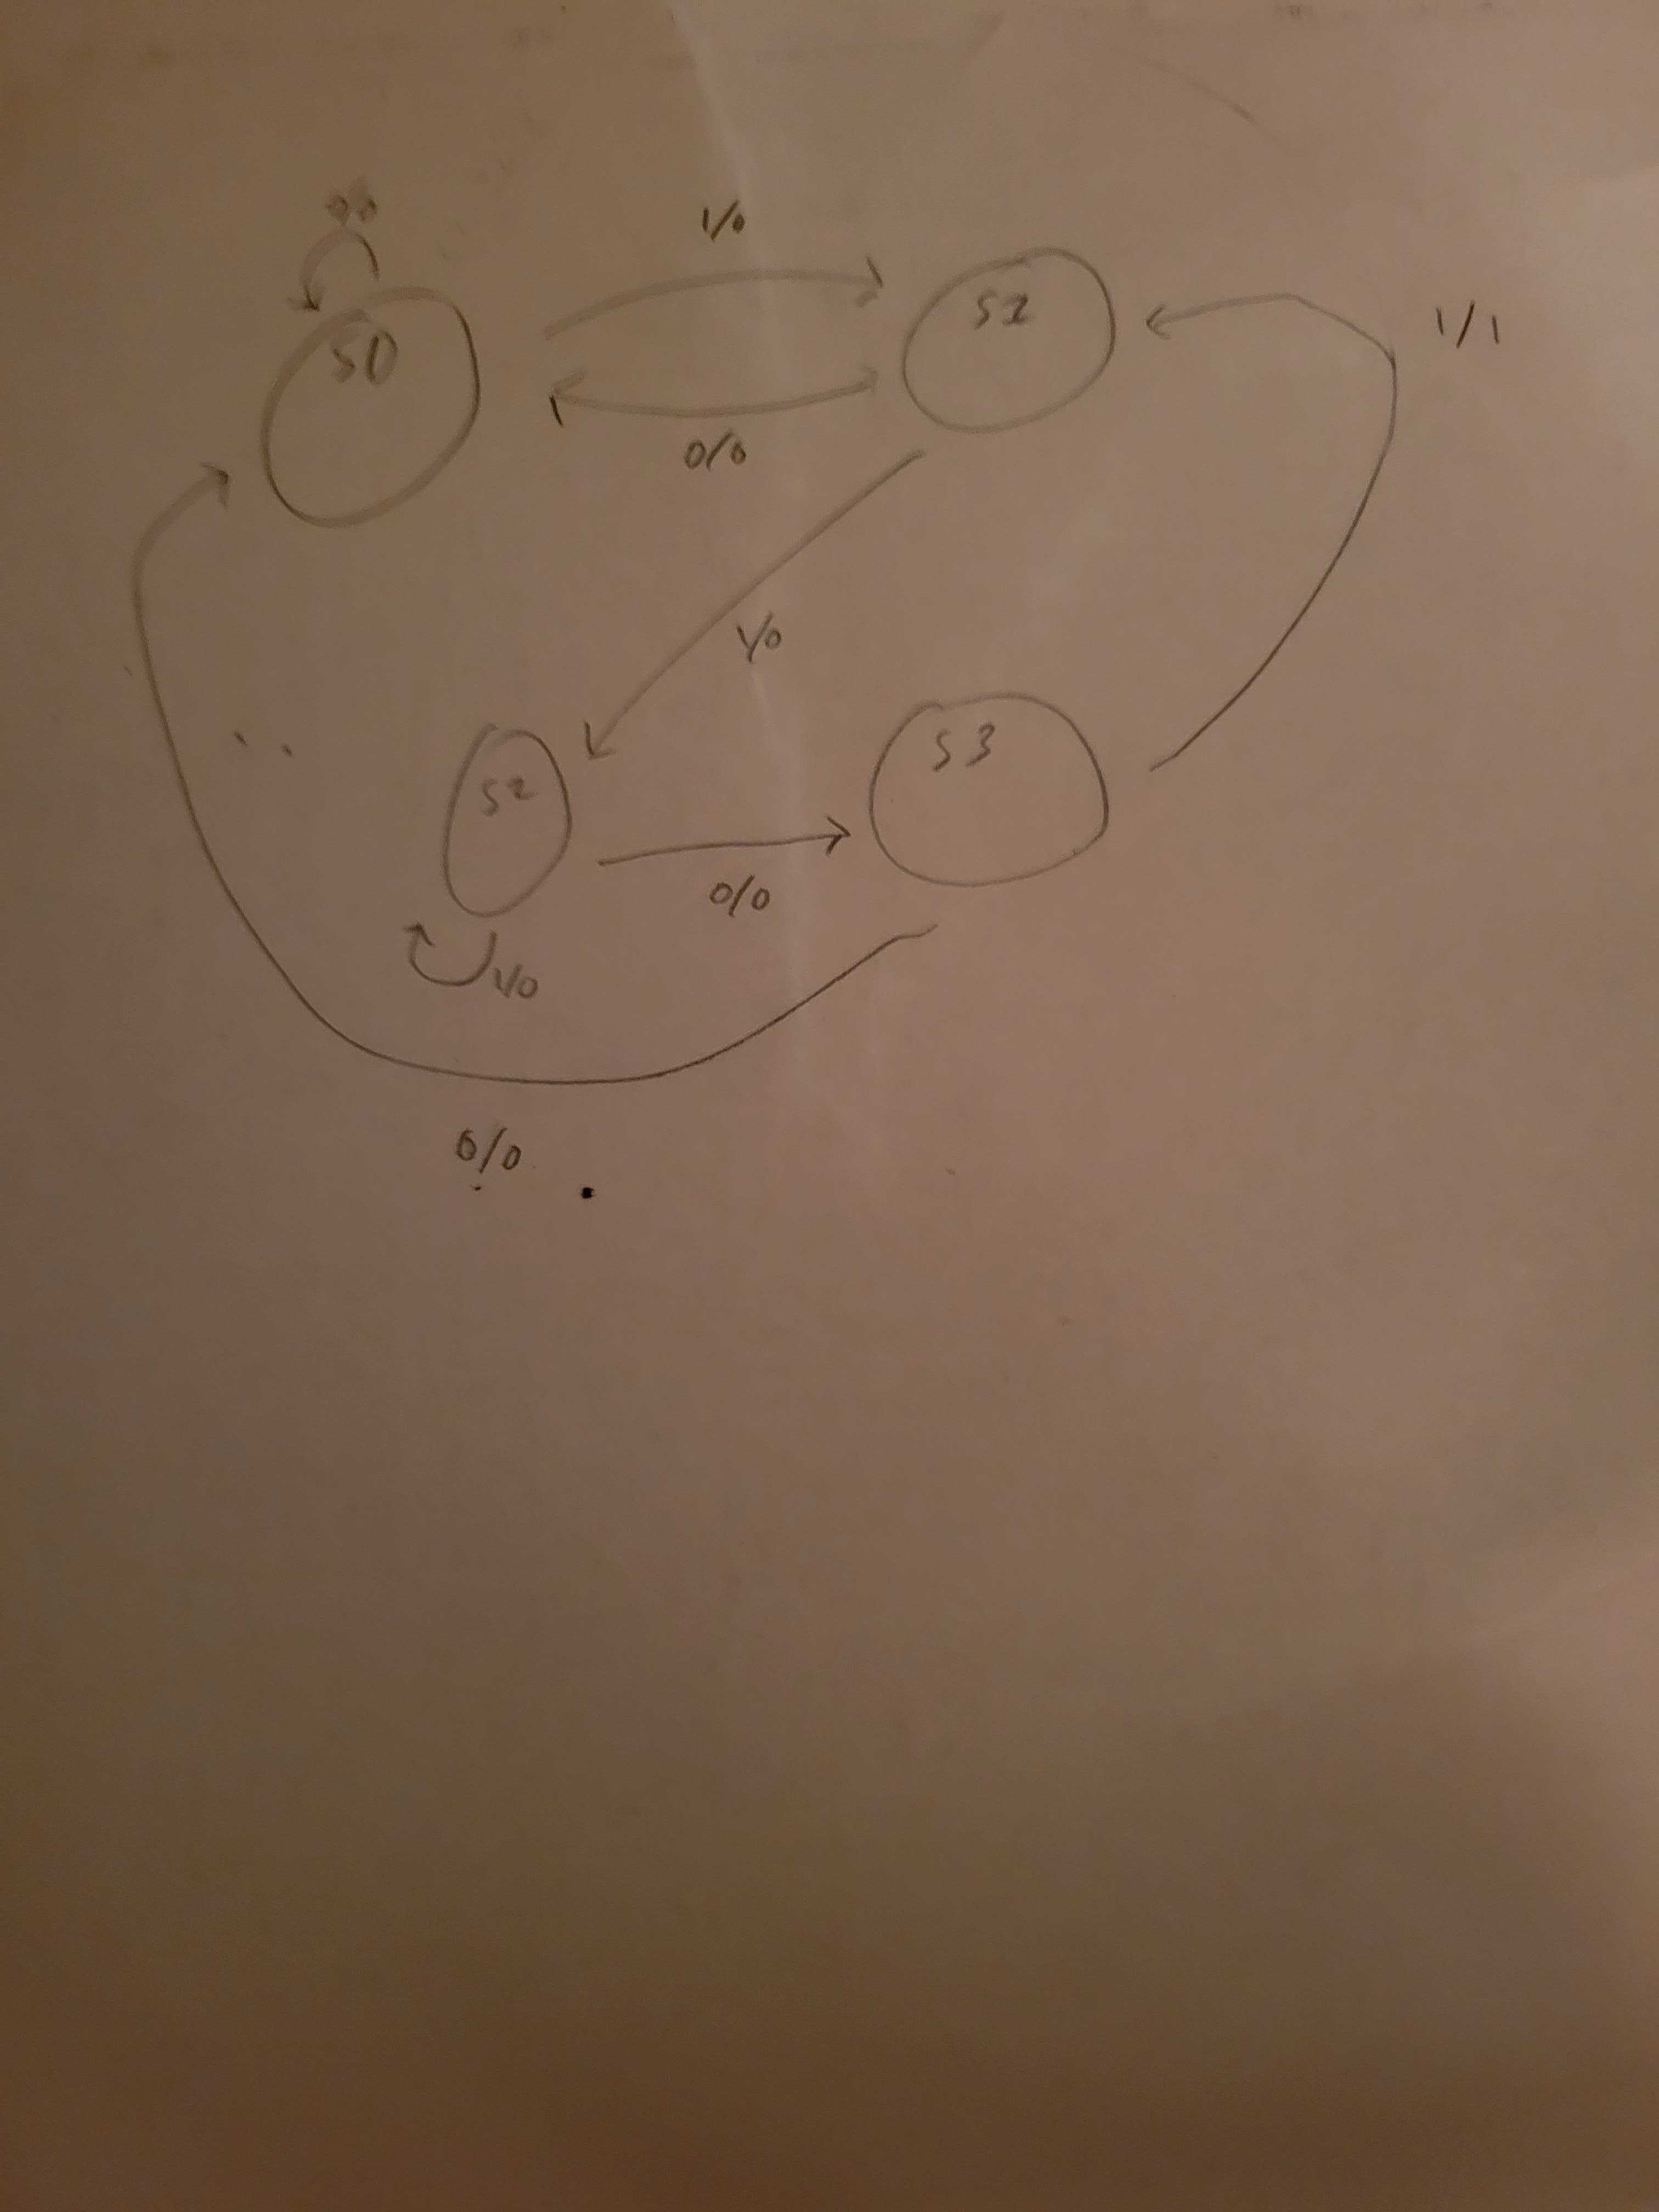 0/0
1/0
S0
S1
1/1
0/0
1/0
S2
S3
0/0
1/0
0/0